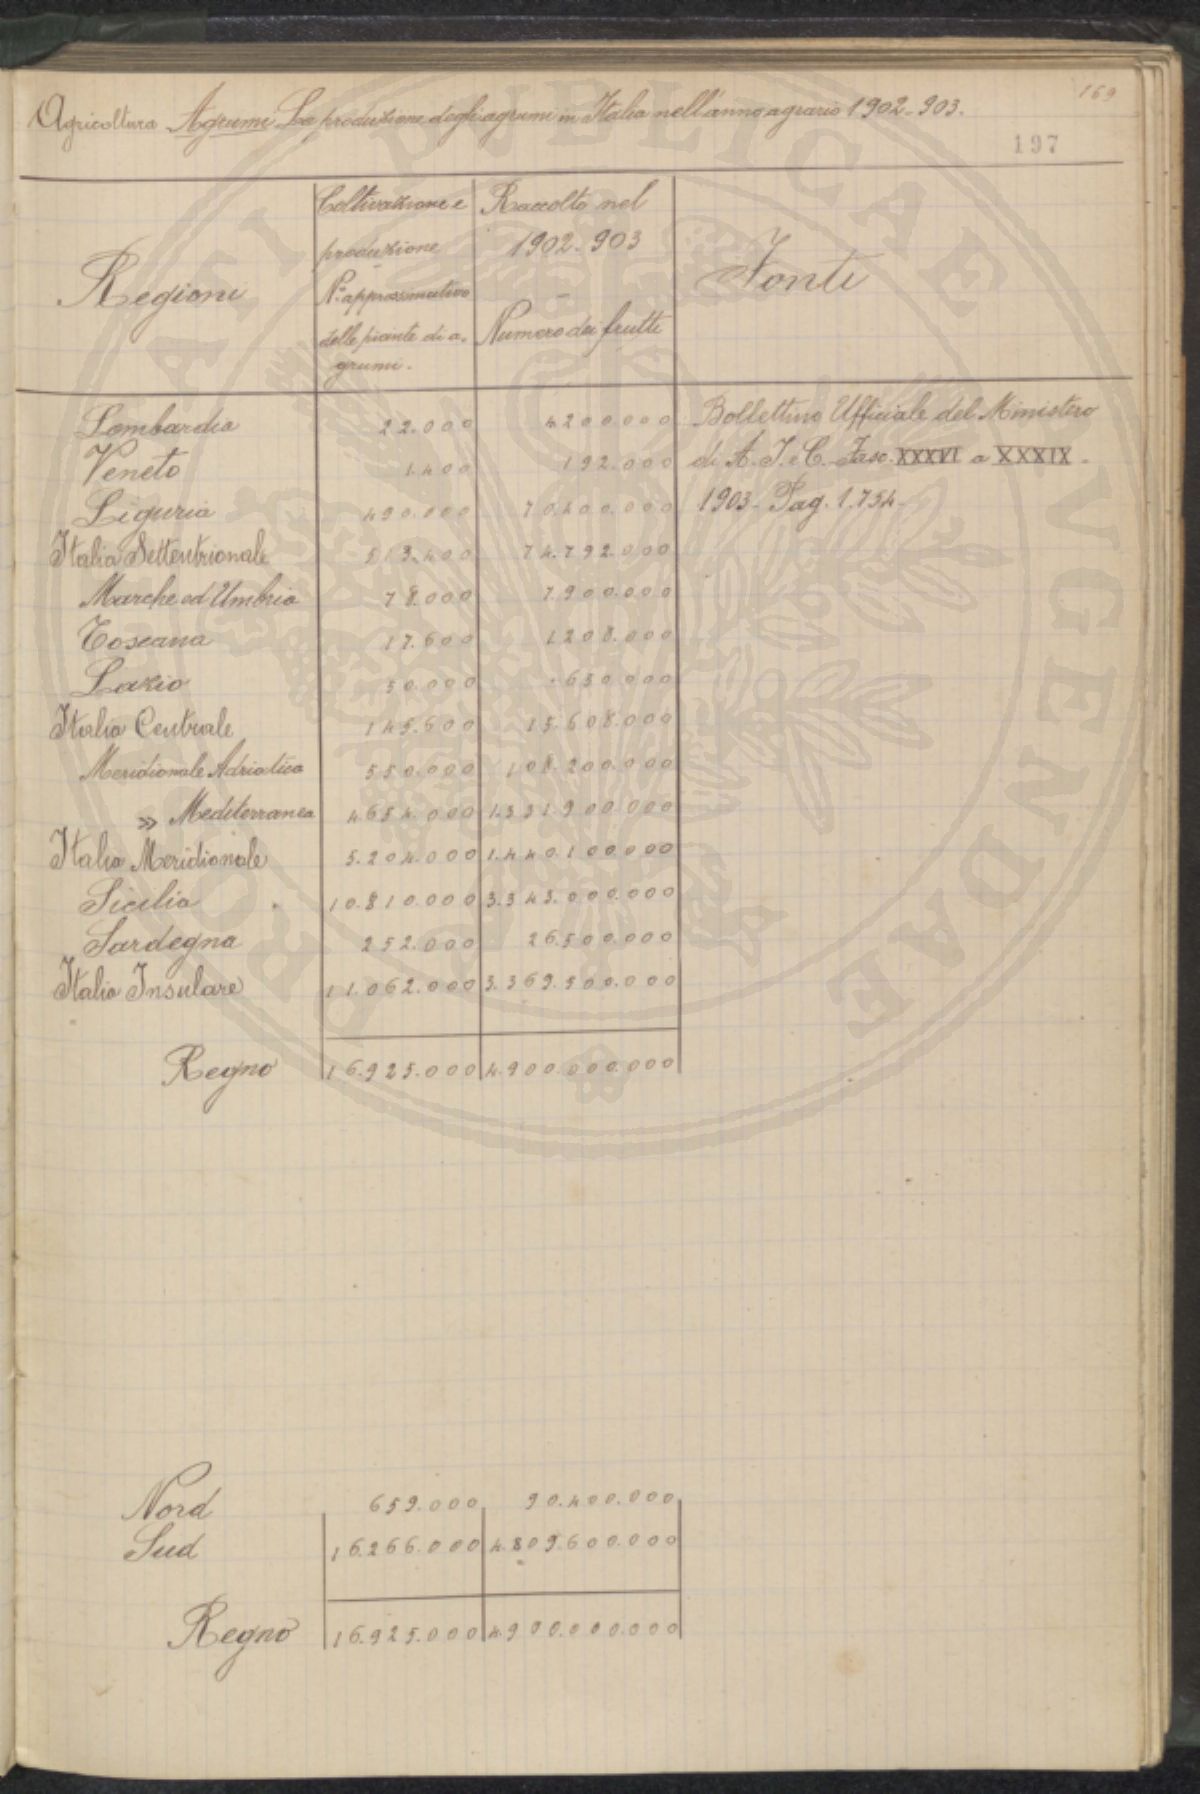 169
Agricoltura Agrumi La produzione degli agrumi in Italia nell'anno agrario 1902-903.
197
Regioni
Coltivazione e
produzione
N.º approssimativo
delle piante di a-
grumi.
Raccolto nel
1902-903
Numero dei frutti
Fonti
Lombardia 22.000 4200000
Veneto 1400 192.000
Liguria 490.000 70400.000
Italia Settentrionale 513.400 74.792.000
Marche ed Umbria 78.000 7900.000
Toscana 17.600 1208.000
Lazio 50.000 650000
Italia Centrale 145.600 15.608.000
Meridionale Adriatica 550.000 108.200.000
» Mediterranea 4654.000 1.331900.000
Italia Meridionale 5.204.000 1.440.100000
Sicilia 10.810.000 3.343.000.000
Sardegna 252.000 26.500.000
Italia Insulare 11.062.000 3.369.500.000
Regno 16.925.000 4.900.000.000
Bollettino Ufficiale del Ministero
di A. I. e C. Fasc. XXXVI a XXXIX -
1903 - Pag. 1.754 -
Nord 659.000 90.400.000
Sud 16.266.000 4.809.600.000
Regno 16.925.000 4.900.000.000
PRO QUASI PUBLICAE IVGENDAE